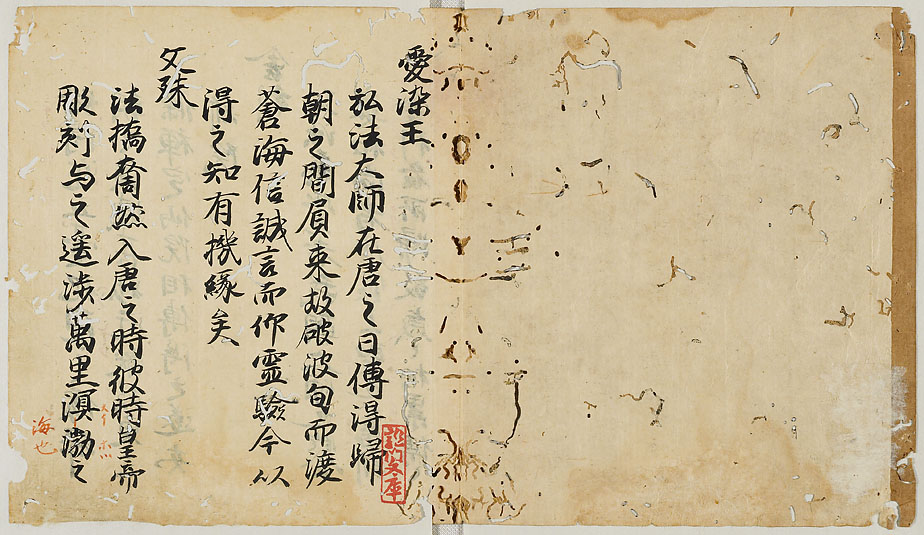 愛染王
弘法大師在唐之日傳得歸
朝之間負来故破波旬而渡
蒼海信誠言而仰靈驗今以
得之知有機緣矣
文殊
法橋奝然入唐之時彼時皇帝
彫刻与之遥渉萬里溟渤之
海也
文庫